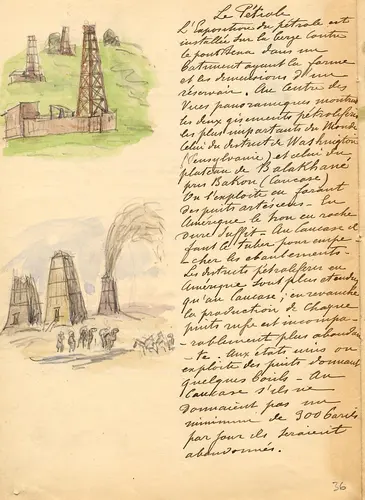 Le Pétrole
L'Exposition du pétrole est
installée sur la berge contre
le pont Iéna dans un
batiment ayant la forme
et les dimensions d'un
réservoir. Au Centre des
Vues panoramiques montrent
les deux gisements pétrolifères
les plus importants du Monde
Celui du district de Washington
(Pensylvanie) et celui du
plateau de Balakhané
près Bakou (Caucase)
On l'exploite en forant
des puits artésiens - En
Amérique le trou en roche
dure suffit - Au Caucase il
faut le tuber pour empe-
cher les éboulements -
Les districts pétrolifères en
Amérique sont plus étendus
qu'au Caucase; en revanche
la production de chaque
puits russe est incompa-
rablement plus abondan-
te. Aux états unis on
exploite des puits donnant
quelques barils - Au
Caucase s'ils ne
donnaient pas un
minimum de 300 barils
par jour ils seraient
abandonnés.
36